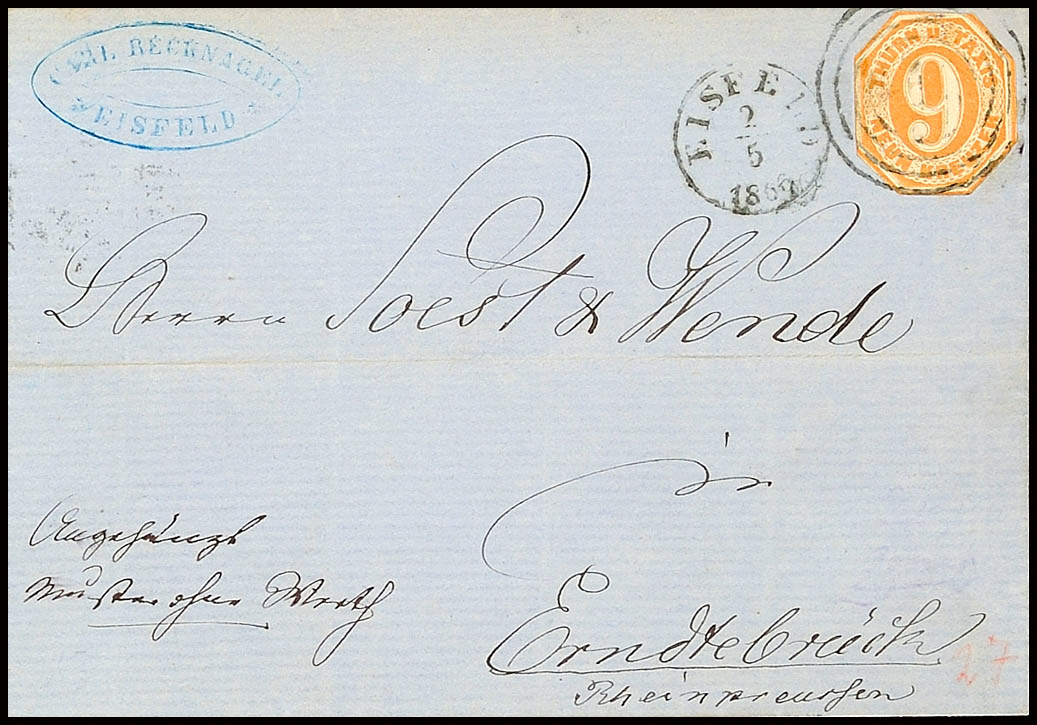 CARL RECKNAGEL
EISFELD
EISFELD
2
5
1866
THURN U. TAXIS
9
NEUN KREUZER
Herrn Soest & Wende
in
Angehängt
Muster ohne Werth
Erndtebrück
Rheinpreussen
27